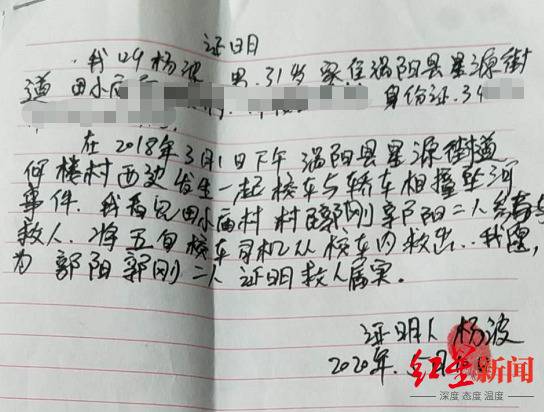 证明
我叫杨波 男.31岁 家住涡阳县星源街
道田小庙 身份证.34
在2018年3月1日下午 涡阳县星源街道
何楼村西边发生一起校车与轿车相撞坠河
事件.我看见田小庙村 村民郭刚 郭阳二人参与
救人.将五旬校车司机从校车内救出.我
为 郭阳 郭刚 二人 证明救人属实.
证明人 杨波
2020年.5月
红星新闻
深度 态度 温度